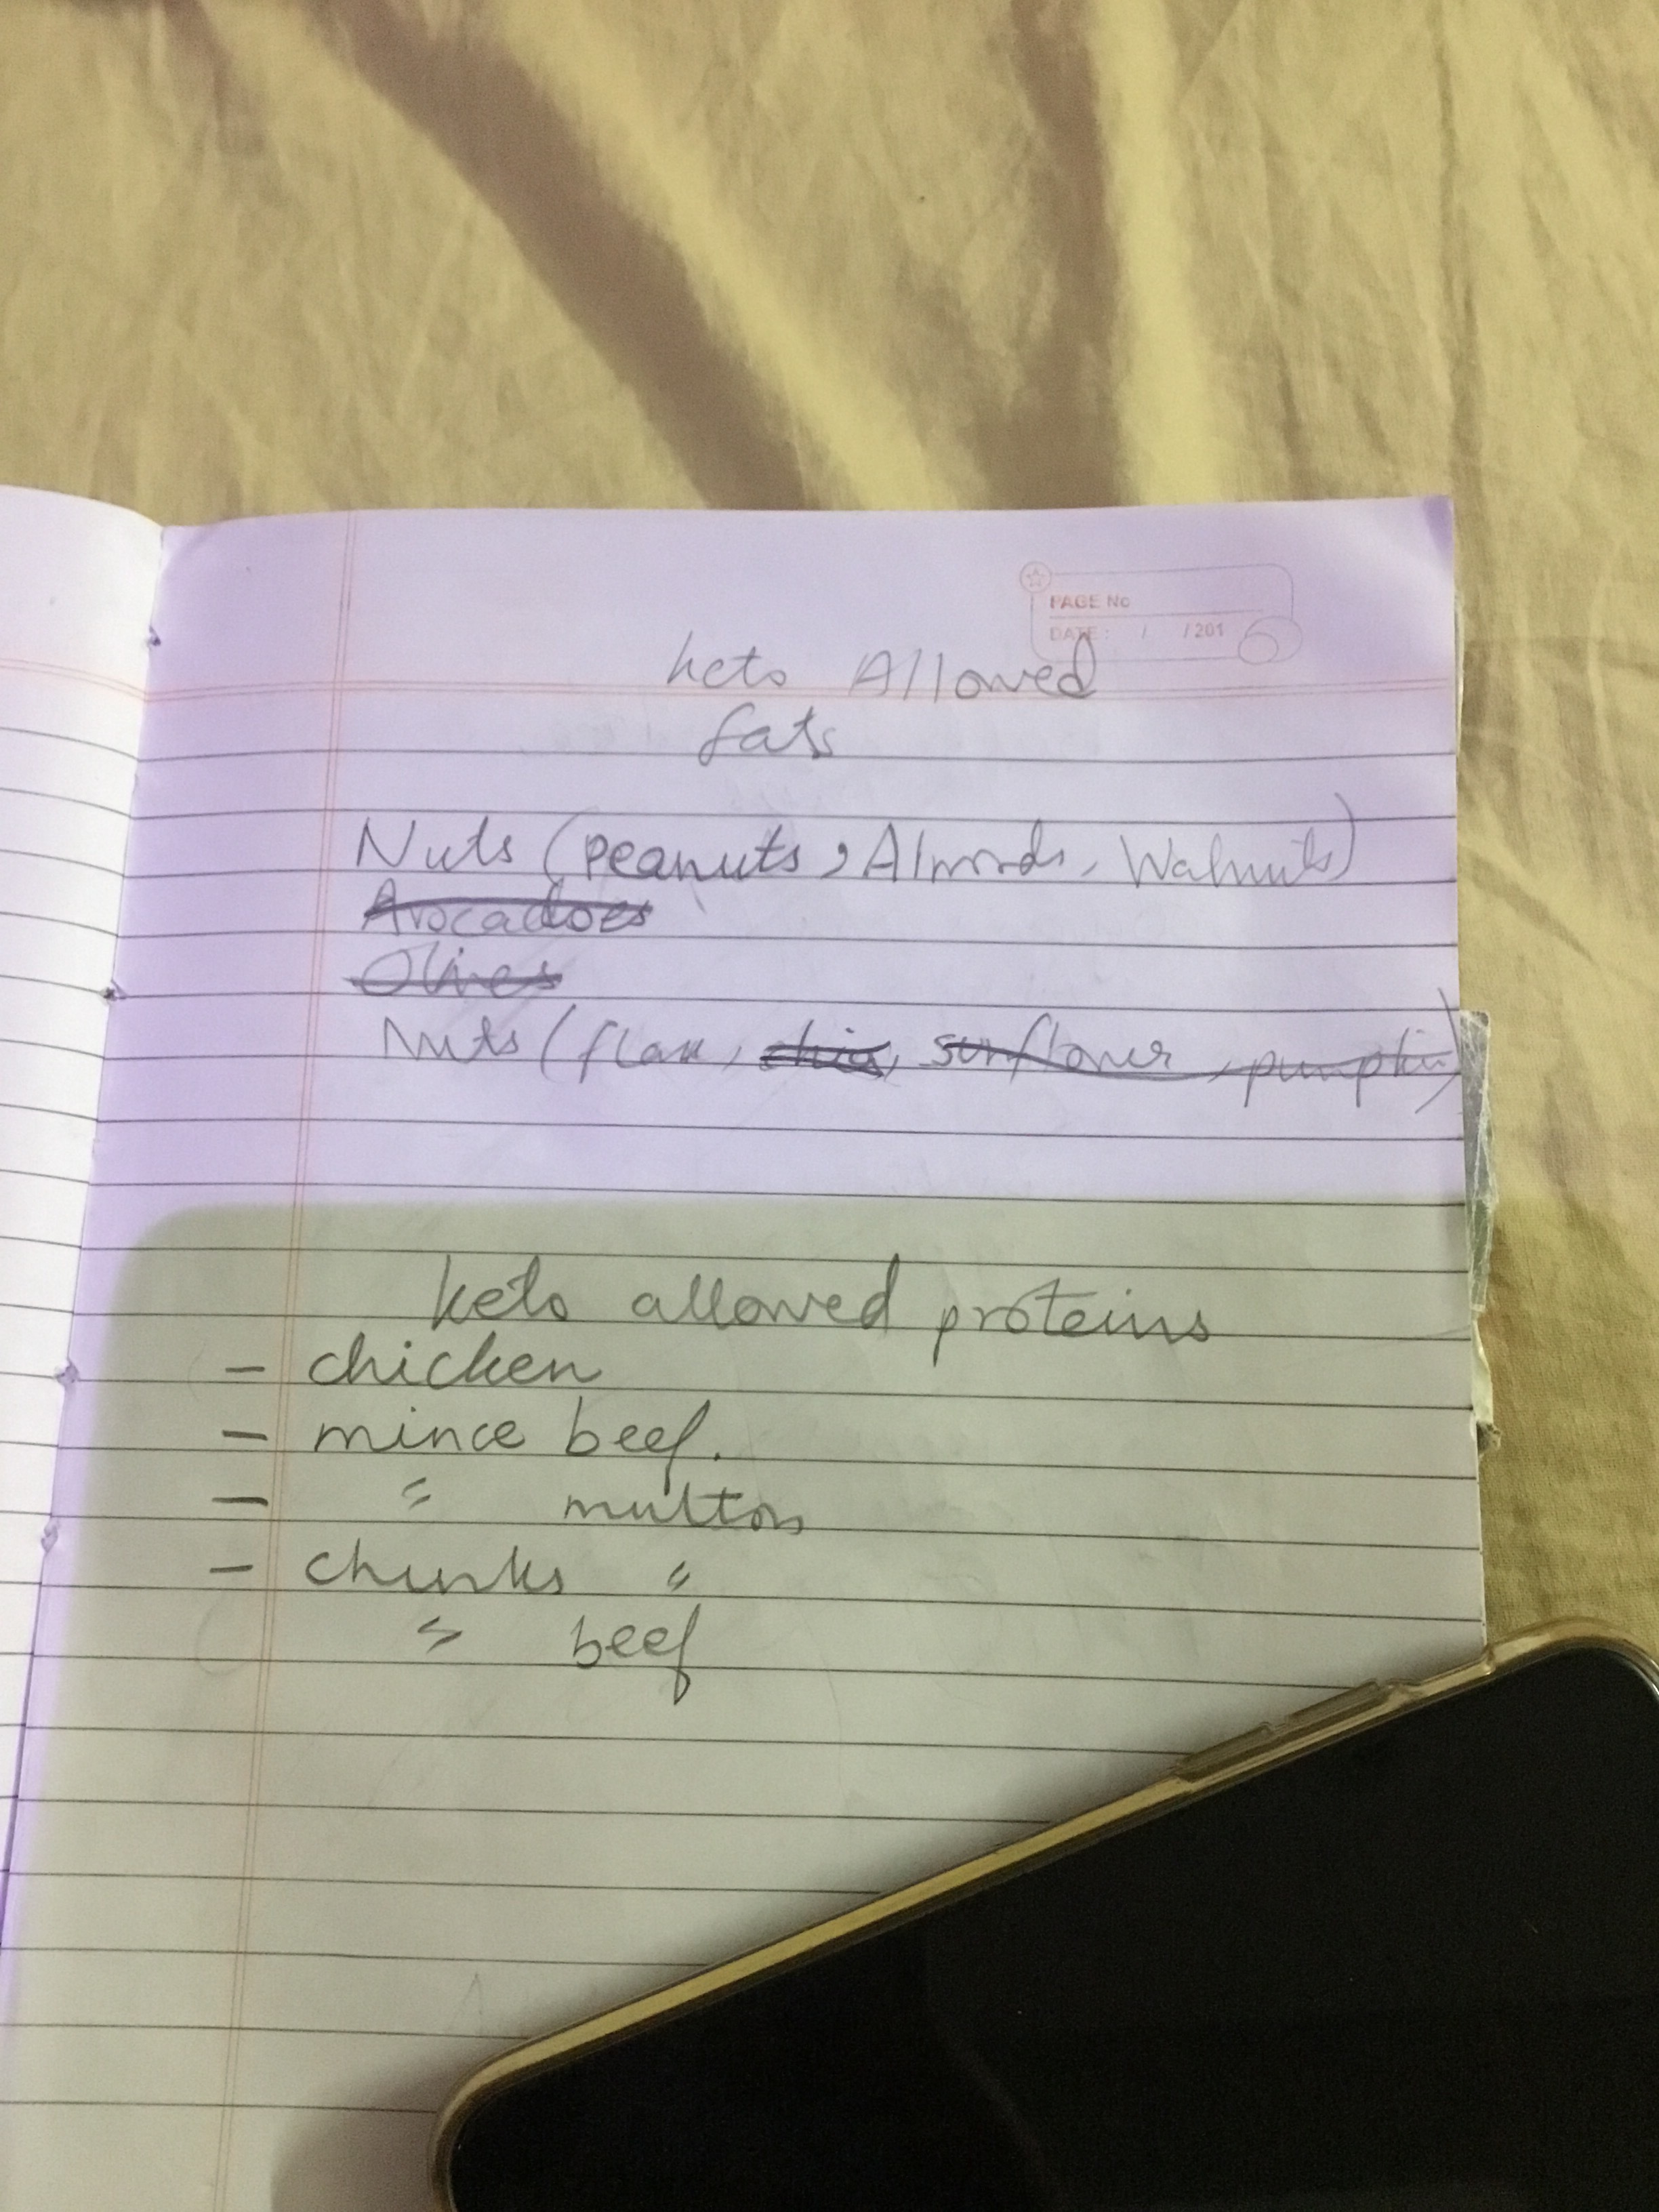 PAGE No
DATE : / /201
keto Allowed
fats
Nuts (Peanuts, Almonds, Walnuts)
Avocadoes
Olives
Nuts (flax, chia, sunflower, pumpkin)
keto allowed proteins
- chicken
- mince beef.
- " mutton
- chunks "
" beef